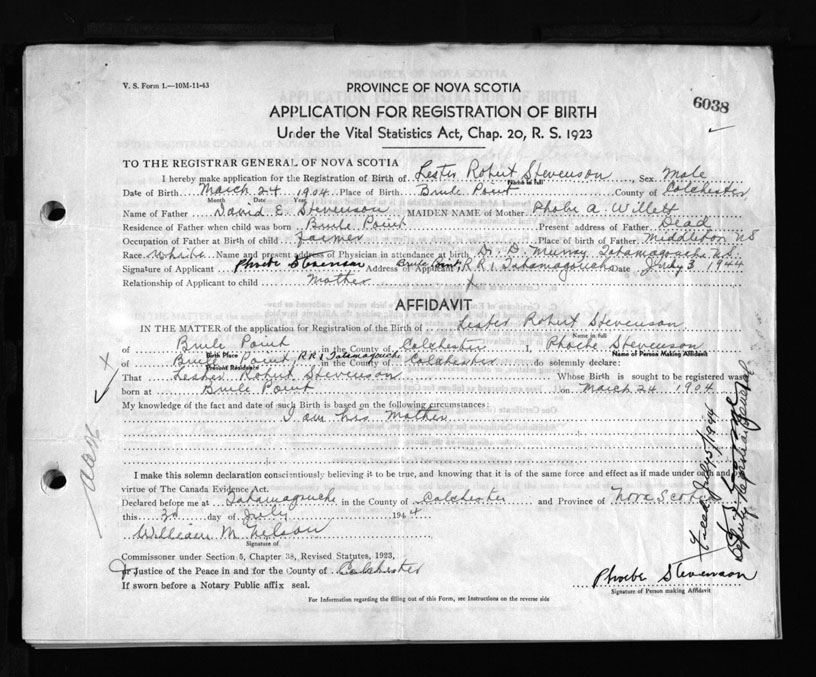 V. S. Form 1.—10M-11-43
PROVINCE OF NOVA SCOTIA
6038
APPLICATION FOR REGISTRATION OF BIRTH
Under the Vital Statistics Act, Chap. 20, R. S. 1923
TO THE REGISTRAR GENERAL OF NOVA SCOTIA
I hereby make application for the Registration of Birth of Lester Robert Stevenson, Sex Male
Name in full
Date of Birth March 24 1904 Place of Birth Brule Point County of Colchester
Month Date Year
Name of Father David E. Stevenson MAIDEN NAME of Mother Phobe A Willett
Residence of Father when child was born Brule Point Present address of Father Dead
Occupation of Father at Birth of child farmer Place of Birth of Father Middleton NS
Race White Name and present address of Physician in attendance at birth Dr. D. Murray Tatamagouche N.S.
Signature of Applicant Phoebe Stevenson Address of Applicant Brule Point, R R 1 Tatamagouche Date July 3 1944
Relationship of Applicant to child mother
AFFIDAVIT
IN THE MATTER of the application for Registration of the Birth of Lester Robert Stevenson
Name in full
of Brule Point in the County of Colchester I, Phoebe Stevenson
Birth Place Name of Person Making Affidavit
of Brule Point RR1 Tatamagouche in the County of Colchester do solemnly declare:
Present Residence
That Lester Robert Stevenson Whose Birth is sought to be registered was
born at Brule Point on March 24 1904
My knowledge of the fact and date of such Birth is based on the following circumstances:
I am his Mother
I make this solemn declaration conscientiously believing it to be true, and knowing that it is of the same force and effect as if made under oath and by
virtue of The Canada Evidence Act.
Declared before me at Tatamagouche in the County of Colchester and Province of Nova Scotia
this 3d day of July 1944
William M. Nelson
Signature of
Commissoner under Section 5, Chapter 38, Revised Statutes, 1923,
or Justice of the Peace in and for the County of Colchester
If sworn before a Notary Public affix seal.
Phoebe Stevenson
Signature of Person making Affidavit
For Information regarding the filling out of this Form, see Instructions on the reverse side
Filed July 5/1944
Deputy Registrar General